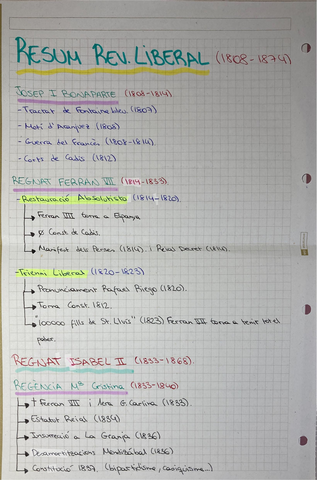 RESUM REV. LIBERAL (1808-1874)
JOSEP I BONAPARTE (1808-1814)
- Tractat de Fontainebleu (1807)
- Motí d'Aranjuez (1808)
- Guerra del Francès (1808-1814)
- Corts de Cadis (1812)
REGNAT FERRAN VII (1814-1833)
- Restauració Absolutista (1814-1820)
Ferran VII torna a Espanya
Ø Const de Cadis.
Manifest dels Perses (1814) i Reial Decret (1814).
- Trienni Liberal (1820-1823)
Pronunciament Rafael Riego (1820).
Torna Const. 1812.
"100000 fills de St. Lluís" (1823) Ferran VII torna a tenir tot el
poder.
REGNAT ISABEL II (1833-1868).
REGÈNCIA Mª Cristina (1833-1840)
† Ferran VII i 1era G. Carlina (1833).
Estatut Reial (1834)
Insurreció a La Granja (1836)
Desamortitzacions Mendizábal (1836)
Constitució 1837. (bipartidisme, caciquisme...)